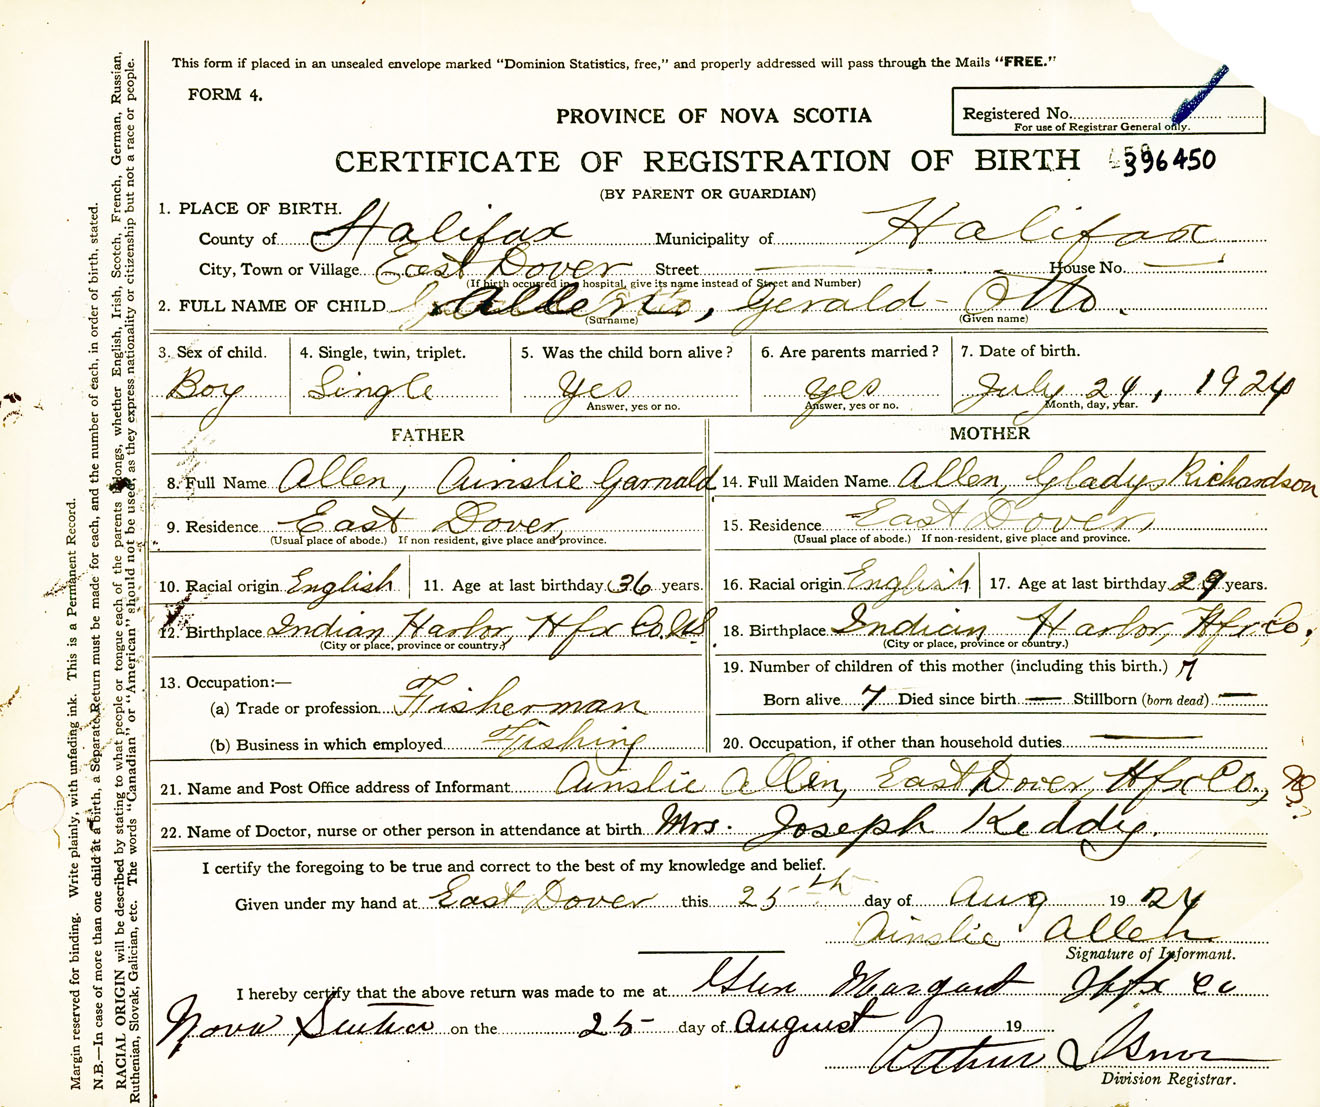 This form if placed in an unsealed envelope marked "Dominion Statistics, free," and properly addressed will pass through the Mails "FREE."
FORM 4.
Registered No.
For use of Registrar General only.
PROVINCE OF NOVA SCOTIA
CERTIFICATE OF REGISTRATION OF BIRTH 396450
(BY PARENT OR GUARDIAN)
1. PLACE OF BIRTH.
County of Halifax Municipality of Halifax
City, Town or Village East Dover Street — House No. —
(If birth occurred in a hospital, give its name instead of Street and Number)
2. FULL NAME OF CHILD , Gerald - Otto.
(Surname) (Given name)
3. Sex of child. 4. Single, twin, triplet. 5. Was the child born alive? 6. Are parents married? 7. Date of birth.
Boy Single Yes yes July 24, 1924
Answer, yes or no. Answer, yes or no. Month, day, year.
FATHER MOTHER
8. Full Name Allen, Ainslie Garnald 14. Full Maiden Name Allen, Gladys Richardson
9. Residence East Dover, 15. Residence East Dover,
(Usual place of abode.) If non resident, give place and province. (Usual place of abode.) If non-resident, give place and province.
10. Racial origin English 11. Age at last birthday 36 years. 16. Racial origin English 17. Age at last birthday 29 years.
12. Birthplace Indian Harbor, Hfx Co. NS 18. Birthplace Indian Harbor, Hfx. Co,
(City or place, province or country.) (City or place, province or country.)
13. Occupation:— 19. Number of children of this mother (including this birth.) 7
(a) Trade or profession Fisherman Born alive 7 Died since birth — Stillborn (born dead) —
(b) Business in which employed Fishing 20. Occupation, if other than household duties —
21. Name and Post Office address of Informant Ainslie Allen, East Dover, Hfx Co., NS.
22. Name of Doctor, nurse or other person in attendance at birth Mrs. Joseph Keddy.
I certify the foregoing to be true and correct to the best of my knowledge and belief.
Given under my hand at East Dover this 25th day of Aug 1924
Ainslie Allen
Signature of Informant.
I hereby certify that the above return was made to me at Glen Margaret Hfx Co
Nova Scotia on the 25 day of August 19
Arthur Isnor
Division Registrar.
Margin reserved for binding. Write plainly, with unfading ink. This is a Permanent Record.
N.B.—In case of more than one child at a birth, a Separate Return must be made for each, and the number of each, in order of birth, stated.
RACIAL ORIGIN will be described by stating to what people or tongue each of the parents belongs, whether English, Irish, Scotch, French, German, Russian,
Ruthenian, Slovak, Galician, etc. The words "Canadian" or "American" should not be used, as they express nationality or citizenship but not a race or people.